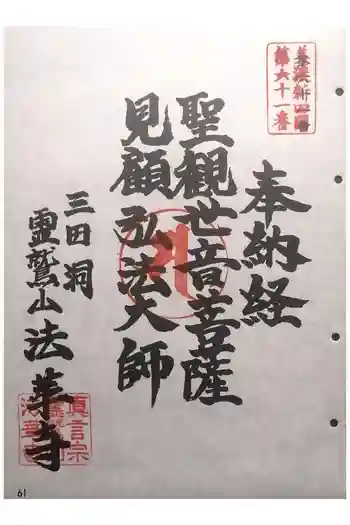 美濃新四国
第六十一番
奉納経
聖観世音菩薩
見顧弘法大師
三田洞
霊鷲山法華寺
真言宗
法華寺
61